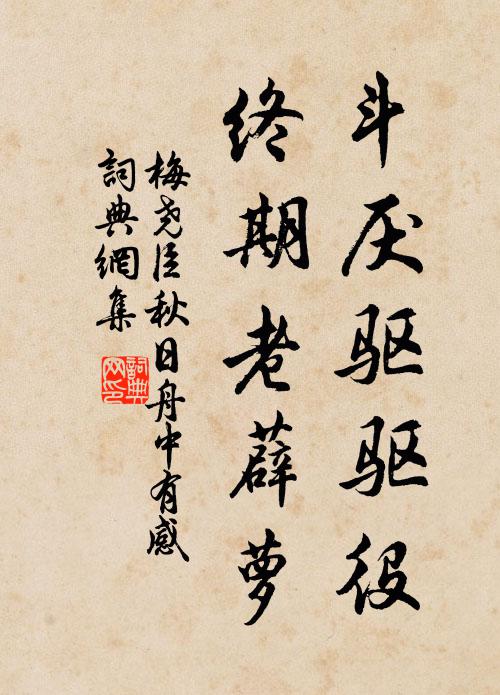 斗厌驱驱役
终期老薜萝
梅尧臣秋日舟中有感
詞典網集
詞典网印